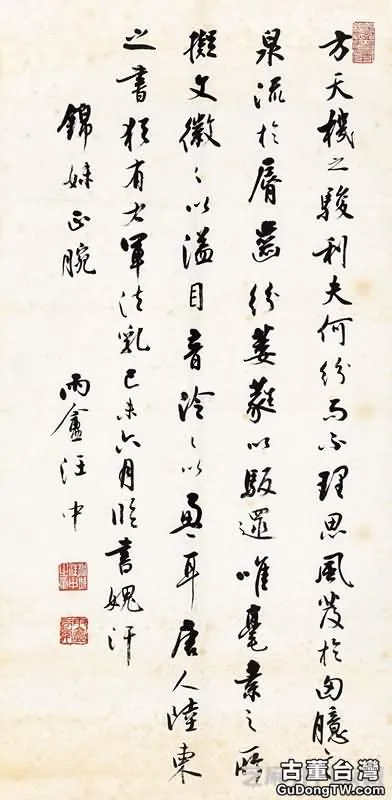 方天機之駿利夫何紛而不理思風發於匈臆言
泉流於脣齒紛葳蕤以馺遝唯毫素之所
擬文徽〻以溢目音泠〻以盈耳唐人陸柬
之書猶有右軍法乳己未六月臨書媿汗
錦妹正腕
雨盦汪中
古董台灣
www.GuDongTW.com